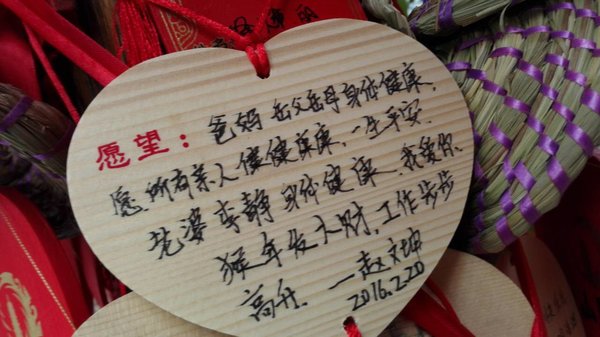 愿望：爸妈 岳父岳母身体健康.
愿所有亲人健健康康，一生平安.
老婆李静身体健康.我爱你.
猴年发大财，工作步步
高升. —赵文坤
2016.2.20